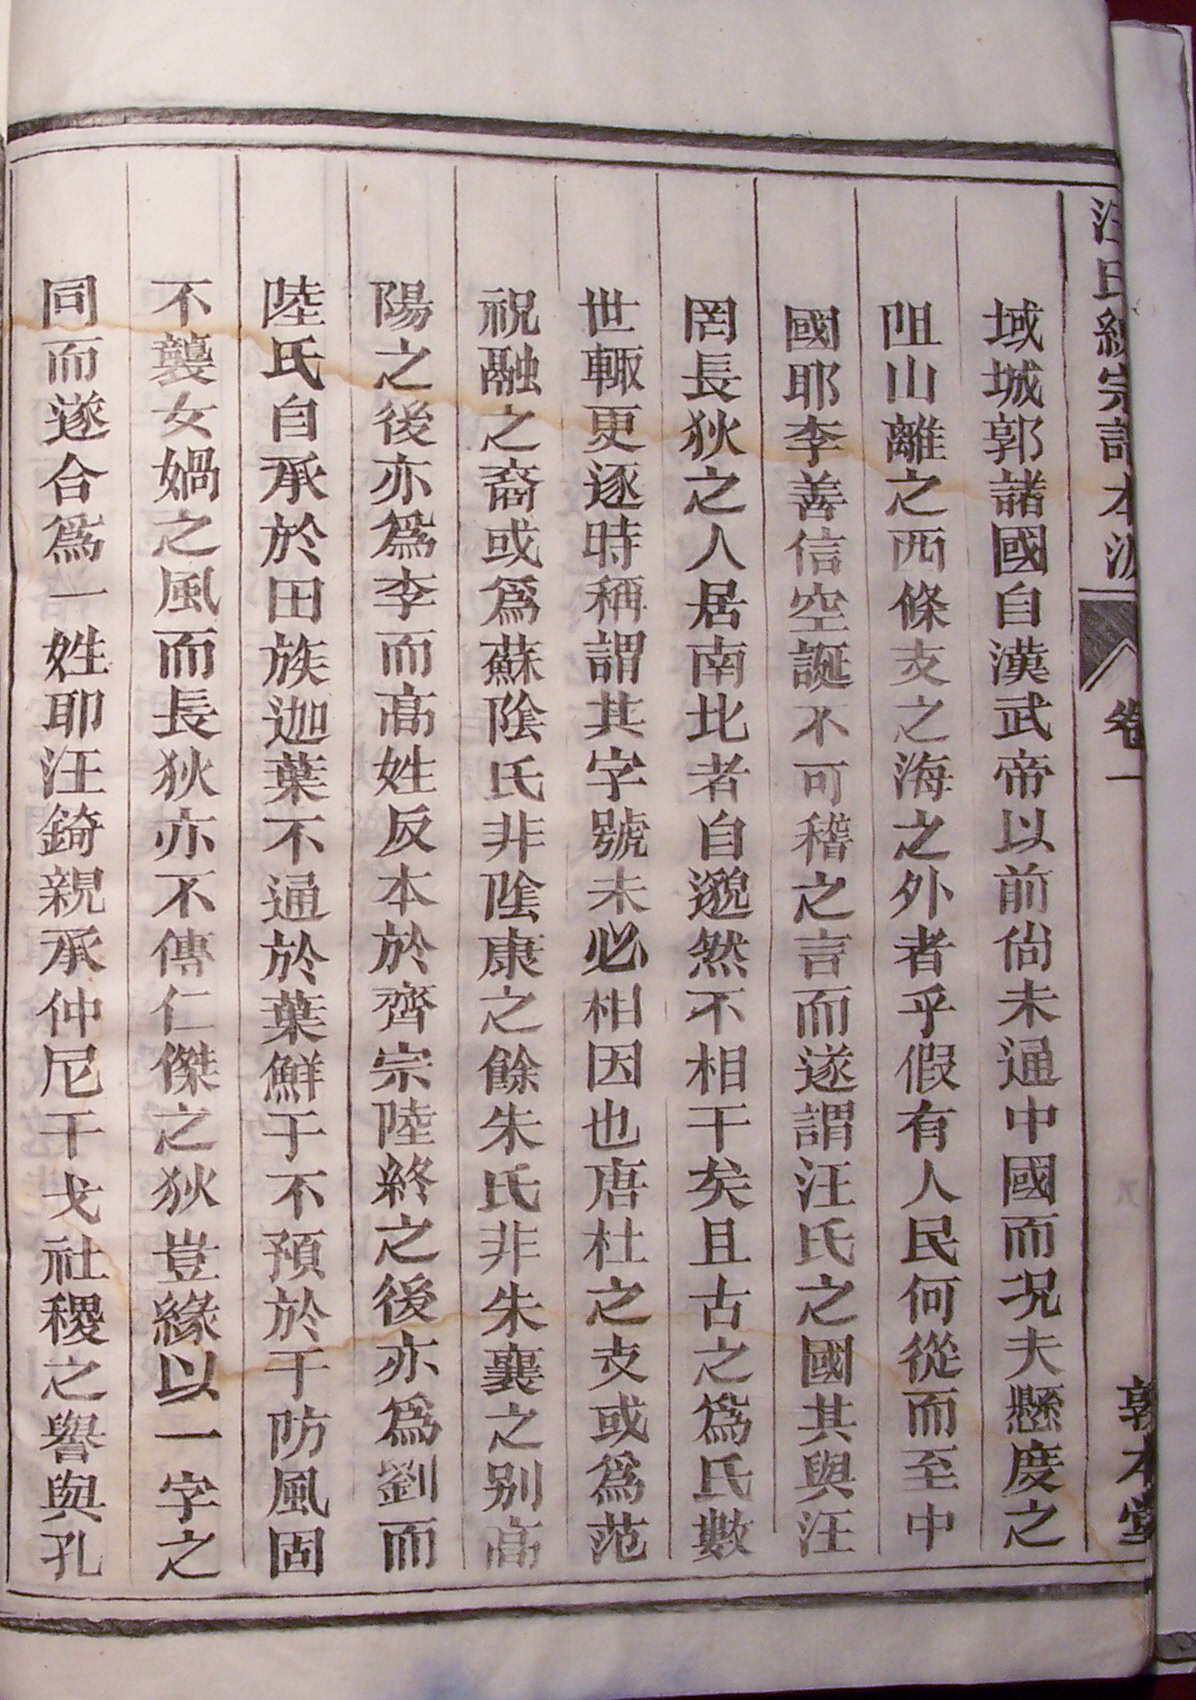 汪氏統宗譜 卷一 敦本堂
域城郭諸國自漢武帝以前尙未通中國而况夫懸度之
阻山離之西條支之海之外者乎假有人民何從而至中
國耶李善信空誕不可稽之言而遂謂汪氏之國其與汪
罔長狄之人居南北者自邈然不相干矣且古之爲氏數
世輙更逐時稱謂其字號未必相因也唐杜之支或爲范
祝融之裔或爲蘇陰氏非陰康之餘朱氏非朱襄之别高
陽之後亦爲李而高姓反本於齊宗陸終之後亦爲劉而
陸氏自承於田族迦葉不通於葉鮮于不預於于防風固
不襲女媧之風而長狄亦不傳仁傑之狄豈緣以一字之
同而遂合爲一姓耶汪錡親承仲尼干戈社稷之譽與孔